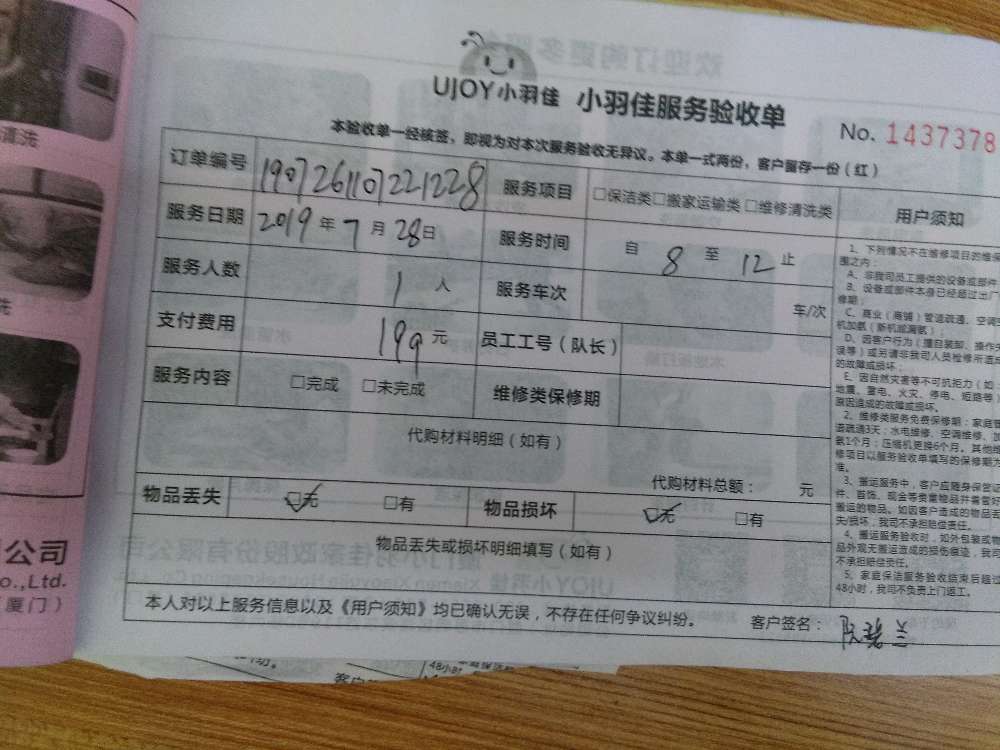 清洗
洗
公司
Co.,Ltd.
（厦门）
欢迎订购更多服务
UJOY小羽佳 小羽佳服务验收单
No. 1437378
本验收单一经核签，即视为对本次服务验收无异议。本单一式两份，客户留存一份（红）
订单编号 1907261107221228 服务项目 □保洁类□搬家运输类□维修清洗类
服务日期 2019年7月28日 服务时间 自 8 至 12 止
服务人数 1 人 服务车次 车/次
支付费用 199元 员工工号（队长）
服务内容 □完成 □未完成 维修类保修期
代购材料明细（如有）
代购材料总额： 元
物品丢失 ☑无 □有 物品损坏 ☑无 □有
物品丢失或损坏明细填写（如有）
本人对以上服务信息以及《用户须知》均已确认无误，不存在任何争议纠纷。 客户签名：
用户须知
1、下列情况不在维修项目的维保
围之内：
A、非我司员工提供的设备或部件
B、设备或部件本身已经超过出厂
修期；
C、商业（商铺）管道疏通、空调
机加氨（新机或漏氨）；
D、因客户行为（擅自装卸、操作失
误等）或另请非我司人员检修所造成
的故障或损坏；
E、因自然灾害等不可抗拒力（如
地震、雷电、火灾、停电、短路等）
原因造成的故障或损坏。
2、维修类服务免费保修期：家庭管
道疏通3天；水电维修、空调维修、加
氨1个月；压缩机更换6个月。其他维
修项目以服务验收单填写的保修期为
准。
3、搬运服务中，客户应随身保管证
件、首饰、现金等贵重物品并需密切
搬运的物品。如因客户造成的物品丢
失/损坏，我司不承担赔偿责任。
4、搬运服务验收时，如外包装或物
品外观无搬运造成的损伤痕迹，我司
不承担赔偿责任。
5、家庭保洁服务验收结束后超过
48小时，我司不负责上门返工。
48小时